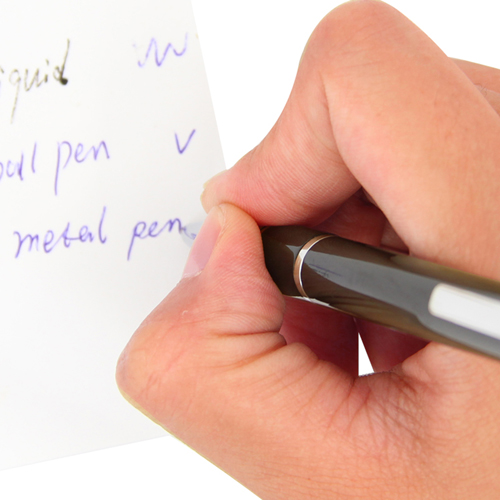 iquid
ball pen v
metal pen